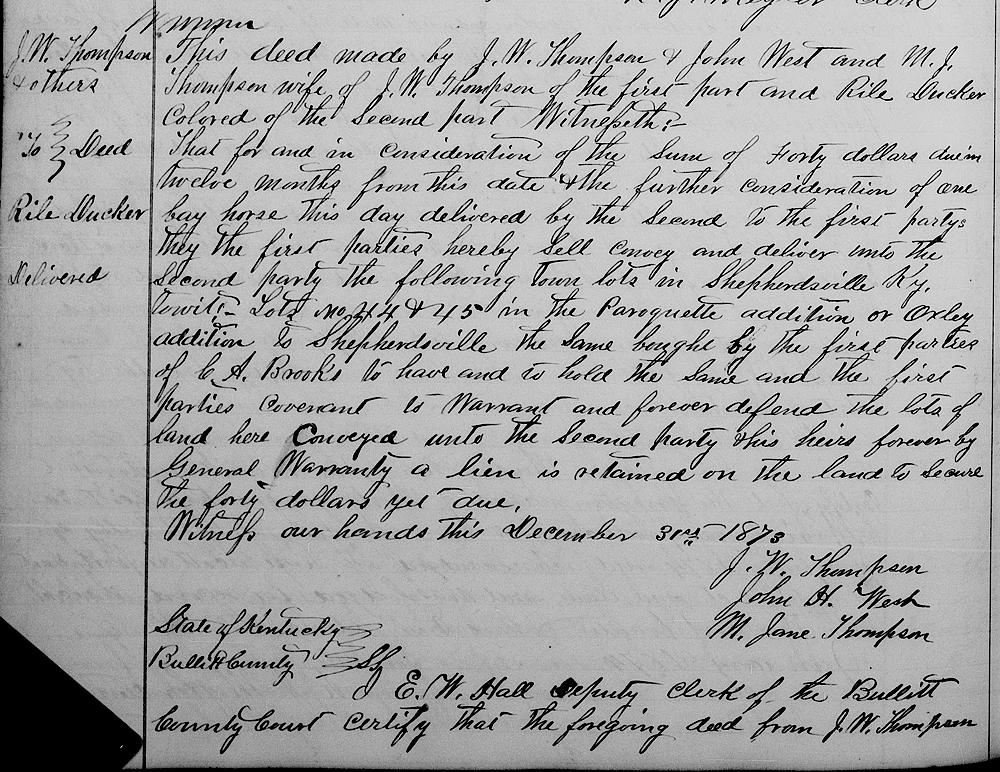 Clerk
J. W. Thompson
& others
To Deed
Rile Ducker
Delivered
This deed made by J. W. Thompson & John West and M. J.
Thompson wife of J. W. Thompson of the first part and Rile Ducker
Colored of the Second part Witnesseth:-
That for and in consideration of the Sum of Forty dollars due in
twelve months from this date & the further consideration of one
bay horse this day delivered by the Second to the first party:
they the first parties hereby Sell Convey and deliver unto the
Second party the following town lots in Shepherdsville Ky.
towit:- Lots No 44 & 45 in the Paroquette addition or Oxley
addition to Shepherdsville the Same bought by the first parties
of C. A. Brooks to have and to hold the Same and the first
parties Covenant to Warrant and forever defend the lots of
land here Conveyed unto the Second party & his heirs forever by
General Warranty a lien is retained on the land to Secure
the forty dollars yet due.
Witness our hands this December 31st 1873
J. W. Thompson
John H. West
M. Jane Thompson
State of Kentucky
Bullitt County } SS
I E. W. Hall Deputy Clerk of the Bullitt
County Court Certify that the foregoing deed from J. W. Thompson